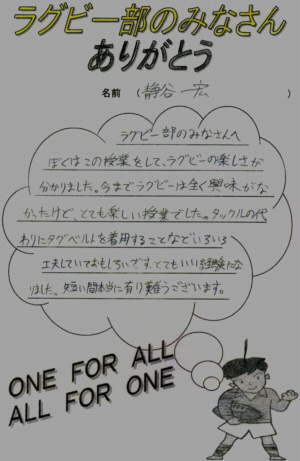 ラグビー部のみなさん
ありがとう
名前 (静谷 一宏 )
ラグビー部のみなさんへ
ぼくはこの授業をして、ラグビーの楽しさが
分かりました。今までラグビーは全く興味がな
かったけど、とても楽しい授業でした。タックルの代
わりにタグベルトを着用することなどいろいろ
工夫していておもしろいです、とてもいい経験にな
りました。短い間本当に有り難うございます。
ONE FOR ALL
ALL FOR ONE